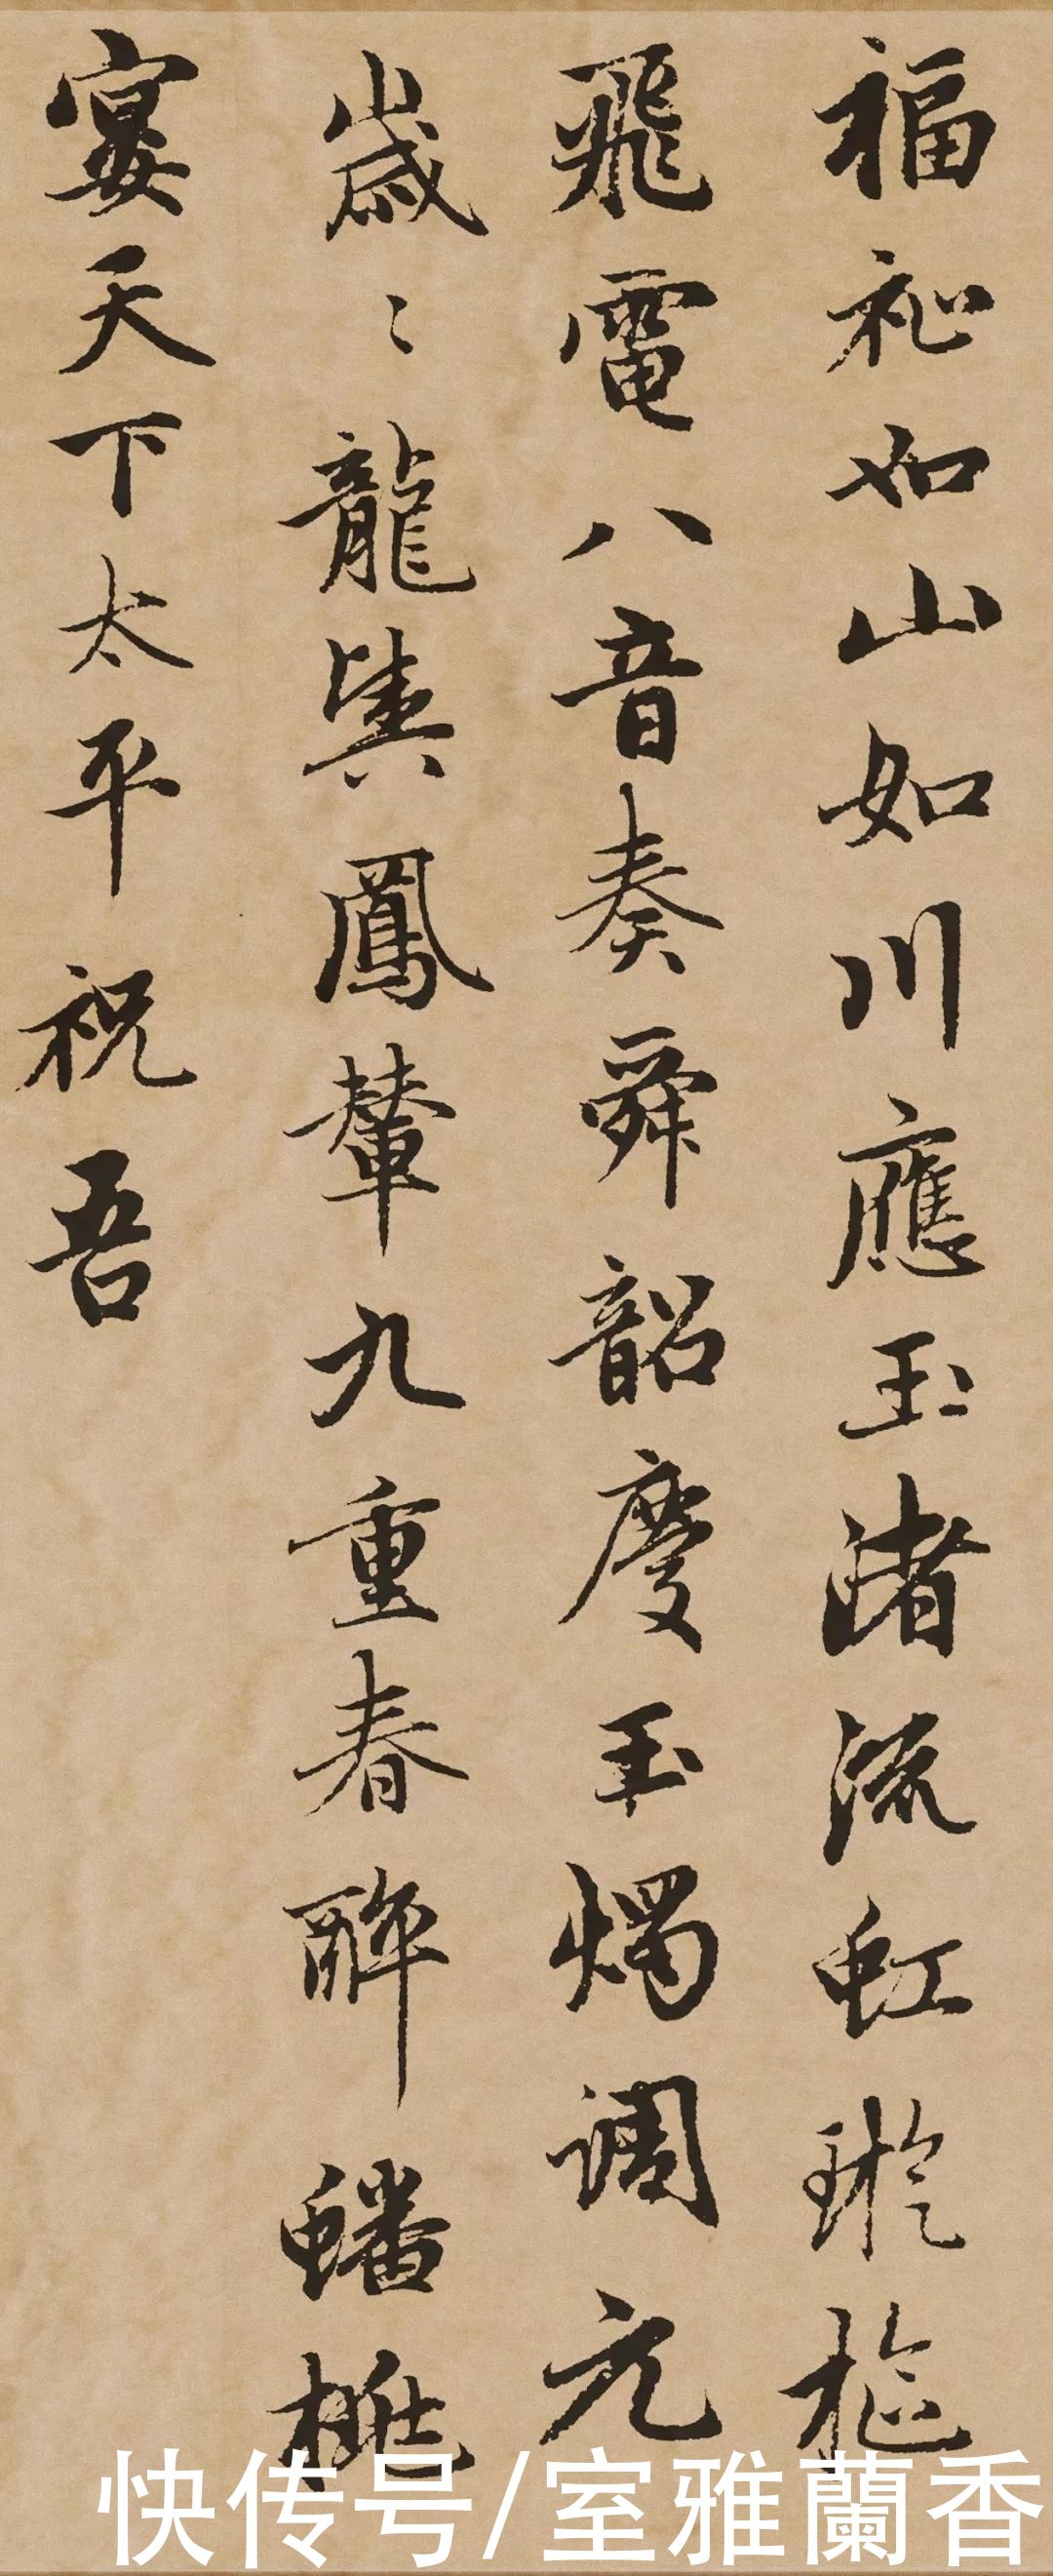 福祉如山如川應玉渚流虹璇樞
飛電八音奏舜韶慶玉燭調元
歲〻龍輿鳳輦九重春醉蟠桃
宴天下太平祝吾
快传号/室雅蘭香